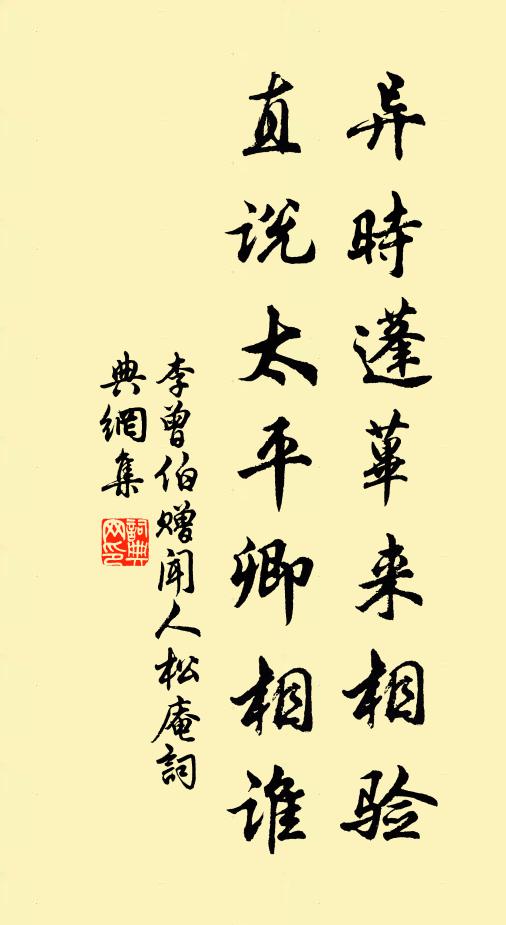 异時蓬蓽来相验
直说太平卿相谁
李曾伯赠闻人松庵詞
典網集
詞典網印